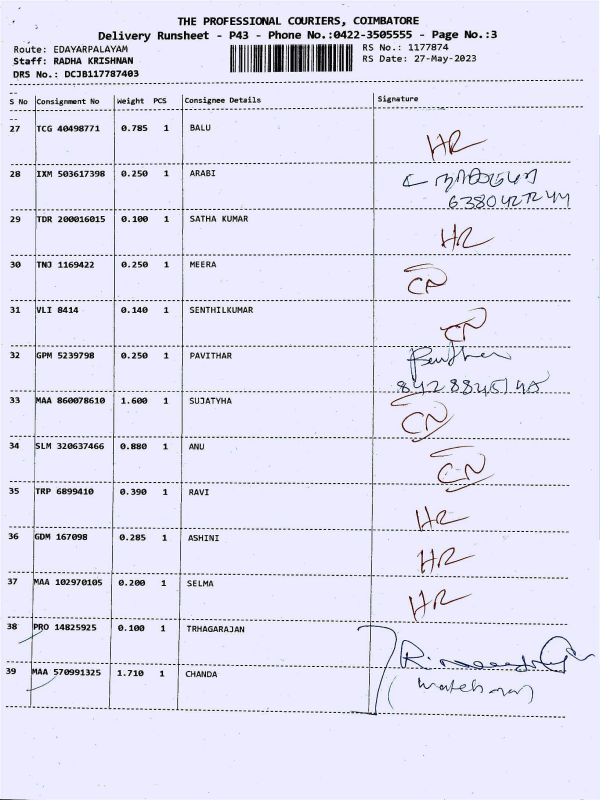 THE PROFESSIONAL COURIERS, COIMBATORE
Delivery Runsheet - P43 - Phone No.:0422-3505555 - Page No.:3
Route: EDAYARPALAYAM
RS No.: 1177874
Staff: RADHA KRISHNAN
RS Date: 27-May-2023
DRS No.: DCJB117787403
S No Consignment No Weight PCS Consignee Details Signature
27 TCG 40498771 0.785 1 BALU HR
28 IXM 503617398 0.250 1 ARABI
29 TDR 200016015 0.100 1 SATHA KUMAR HR
30 TNJ 1169422 0.250 1 MEERA CN
31 VLI 8414 0.140 1 SENTHILKUMAR CN
32 GPM 5239798 0.250 1 PAVITHAR
33 MAA 860078610 1.600 1 SUJATYHA CN
34 SLM 320637466 0.880 1 ANU CN
35 TRP 6899410 0.390 1 RAVI HR
36 GDM 167098 0.285 1 ASHINI HR
37 MAA 102970105 0.200 1 SELMA HR
38 PRO 14825925 0.100 1 TRHAGARAJAN
39 MAA 570991325 1.710 1 CHANDA